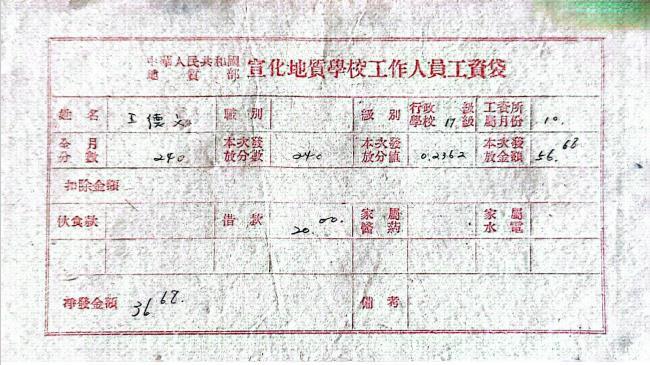 中華人民共和國
地質部 宣化地質學校工作人員工資袋
姓名 王德 職別 級別 行政學校 17 級級 工資所屬月份 10.
全月分數 240 本次發放分數 240 本次發放分值 0.2362 本次發放金額 56.68
扣除金額
伙食款 借款 20.00. 家屬醫葯 家屬水電
淨發金額 36 68. 備考